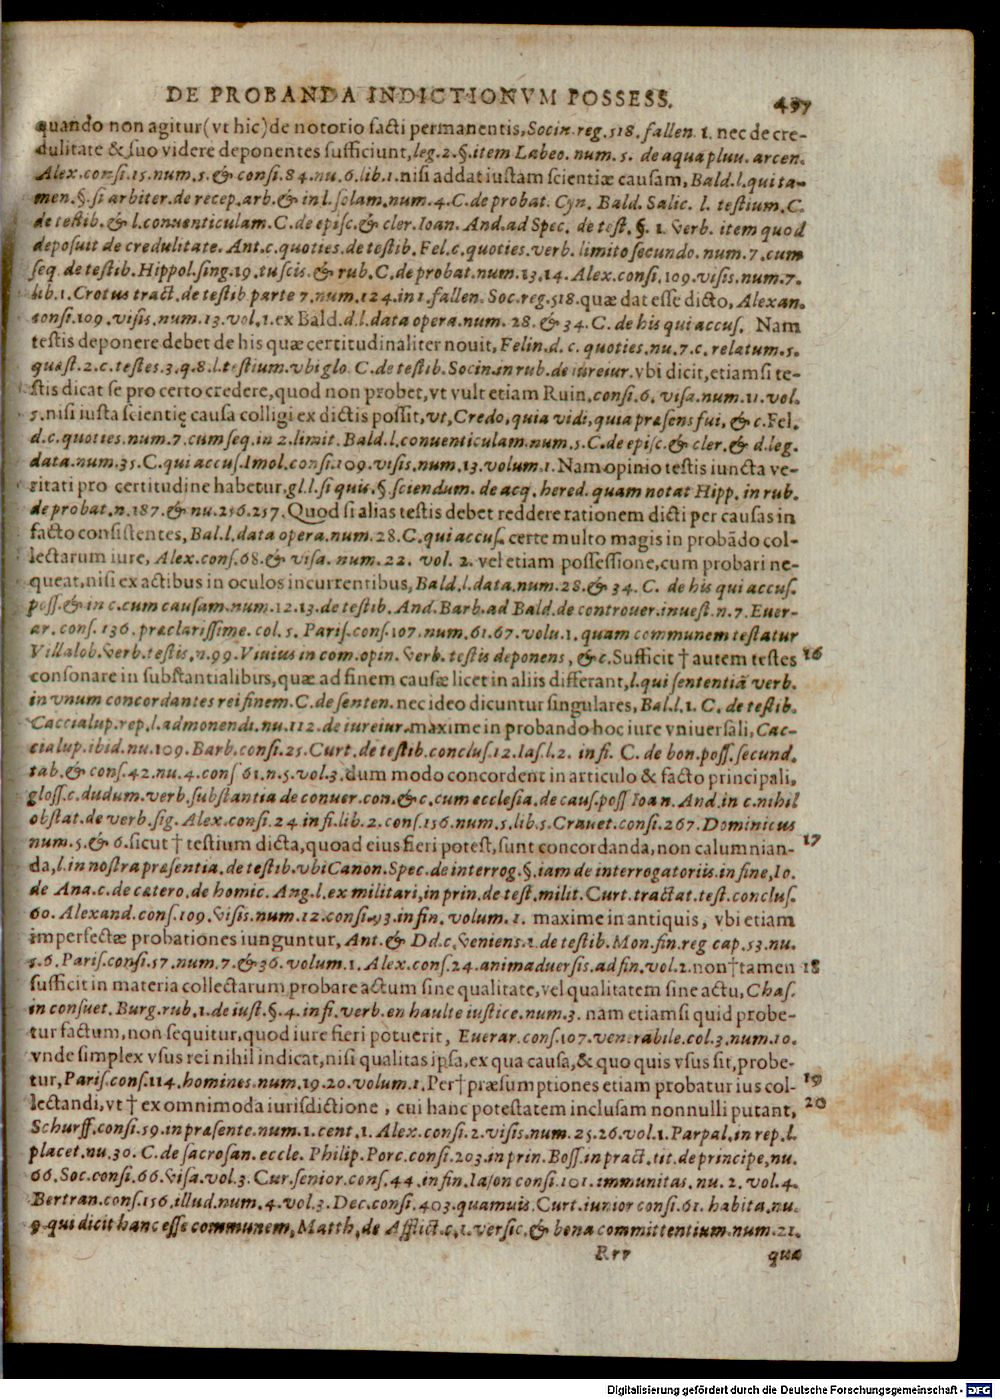 DE PROBANDA INDICTIONVM POSSESS. 497
quando non agitur (vt hic) de notorio facti permanentis, Socin. reg. 518. fallen. 1. nec de cre-
dulitate & suo videre deponentes sufficiunt, leg. 2. §. item Labeo. num. 5. de aqua pluu. arcen.
Alex. consi. 15. num. 5. & consi. 84. nu. 6. lib. 1. nisi addat iustam scientiæ causam, Bald. l. qui ta-
men. §. si arbiter. de recep. arb. & in l. solam. num. 4. C. de probat. Cyn. Bald. Salic. l. testium. C.
de testib. & l. conuenticulam. C. de episc. & cler. Ioan. And. ad Spec. de test. §. 1. verb. item quod
deposuit de credulitate. Ant. c. quoties. de testib. Fel. c. quoties. verb. limito secundo. num. 7. cum
seq. de testib. Hippol. sing. 19. tuscis. & rub. C. de probat. num. 13. 14. Alex. consi. 109. visis. num. 7.
lib. 1. Crotus tract. de testib. parte 7. num. 124. in 1. fallen. Soc. reg. 518. quæ dat esse dicto, Alexan.
consi. 109. visis. num. 13. vol. 1. ex Bald. d. l. data opera. num. 28. & 34. C. de his qui accus. Nam
testis deponere debet de his quæ certitudinaliter nouit, Felin. d. c. quoties. nu. 7. c. relatum. 5.
quæst. 2. c. testes. 3. q. 8. l. testium. vbi glo. C. de testib. Socin. in rub. de iureiur. vbi dicit, etiamsi te-
stis dicat se pro certo credere, quod non probet, vt vult etiam Ruin. consi. 6. visa. num. 11. vol.
5. nisi iusta scientię causa colligi ex dictis possit, vt, Credo, quia vidi, quia præsens fui, & c. Fel.
d. c. quoties. num. 7. cum seq. in 2. limit. Bald. l. conuenticulam. num. 5. C. de episc. & cler. & d. leg.
data. num. 35. C. qui accus. Imol. consi. 109. visis. num. 13. volum. 1. Nam opinio testis iuncta ve-
ritati pro certitudine habetur, gl. l. si quis. §. sciendum. de acq. hered. quam notat Hipp. in rub.
de probat. n. 187. & nu. 256. 257. Quod si alias testis debet reddere rationem dicti per causas in
facto consistentes, Bal. l. data opera. num. 28. C. qui accus. certe multo magis in probãdo col-
lectarum iure, Alex. cons. 68. & visa. num. 22. vol. 2. vel etiam possessione, cum probari ne-
queat, nisi ex actibus in oculos incurrentibus, Bald. l. data. num. 28. & 34. C. de his qui accus.
poss. & in c. cum causam. num. 12. 13. de testib. And. Barb. ad Bald. de controuer. inuest. n. 7. Euer-
ar. cons. 136. præclarissime. col. 5. Paris. cons. 107. num. 61. 67. volu. 1. quam communem testatur
Villalob. verb. testis, n. 99. Viuius in com. opin. verb. testis deponens, & c. Sufficit † autem testes 16
consonare in substantialibus, quæ ad finem causæ licet in aliis differant, l. qui sententiã verb.
in vnum concordantes rei finem. C. de senten. nec ideo dicuntur singulares, Bal. l. 1. C. de testib.
Caccialup. rep. l. admonendi. nu. 112. de iureiur. maxime in probando hoc iure vniuersali, Cac-
cialup. ibid. nu. 109. Barb. consi. 25. Curt. de testib. conclus. 12. Ias. l. 2. in fi. C. de bon. poss. secund.
tab. & cons. 42. nu. 4. cons 61. n. 5. vol. 3. dum modo concordent in articulo & facto principali,
gloss. c. dudum. verb. substantia de conuer. con. & c. cum ecclesia. de caus. poss Ioan. And. in c. nihil
obstat. de verb. sig. Alex. consi. 24 in fi. lib. 2. cons. 156. num. 5. lib. 5. Crauet. consi. 267. Dominicus
num. 5. & 6. sicut † testium dicta, quoad eius fieri potest, sunt concordanda, non calumnian- 17
da, l. in nostra præsentia. de testib. vbi Canon. Spec. de interrog. §. iam de interrogatoriis. in fine, Io.
de Ana. c. de cætero. de homic. Ang. l. ex militari, in prin. de test. milit. Curt. tractat. test. conclus.
60. Alexand. cons. 109. visis. num. 12. consi. 93. in fin. volum. 1. maxime in antiquis, vbi etiam
imperfectæ probationes iunguntur, Ant. & Dd. c. veniens. 2. de testib. Mon. fin. reg cap. 53. nu.
5. 6. Paris. consi. 57. num. 7. & 36. volum. 1. Alex. cons. 24. animaduersis. ad fin. vol. 2. non † tamen 18
sufficit in materia collectarum probare actum sine qualitate, vel qualitatem sine actu, Chas.
in consuet. Burg. rub. 1. de iust. §. 4. in fi. verb. en haulte iustice. num. 3. nam etiamsi quid probe-
tur factum, non sequitur, quod iure fieri potuerit, Euerar. cons. 107. venerabile. col. 3. num. 10.
vnde simplex vsus rei nihil indicat, nisi qualitas ipsa, ex qua causa, & quo quis vsus sit, probe-
tur, Paris. cons. 114. homines. num. 19. 20. volum. 1. Per † præsumptiones etiam probatur ius col- 19
lectandi, vt † ex omnimoda iurisdictione, cui hanc potestatem inclusam nonnulli putant, 20
Schurff. consi. 59. in præsente. num. 1. cent. 1. Alex. consi. 2. visis. num. 25. 26. vol. 1. Parpal. in rep. l.
placet. nu. 30. C. de sacrosan. eccle. Philip. Porc. consi. 203. in prin. Boss. in pract. tit. de principe, nu.
66. Soc. consi. 66. visa. vol. 3. Cur. senior. cons. 44. in fin. Iason consi. 101. immunitas. nu. 2. vol. 4.
Bertran. cons. 156. illud. num. 4. vol. 3. Dec. consi. 403. quamuis. Curt. iunior consi. 61. habita. nu.
9. qui dicit hanc esse communem, Matth. de Afflict. c. 1. versic. & bona committentium. num. 21.
Rrr quæ
Digitalisierung gefördert durch die Deutsche Forschungsgemeinschaft - DFG